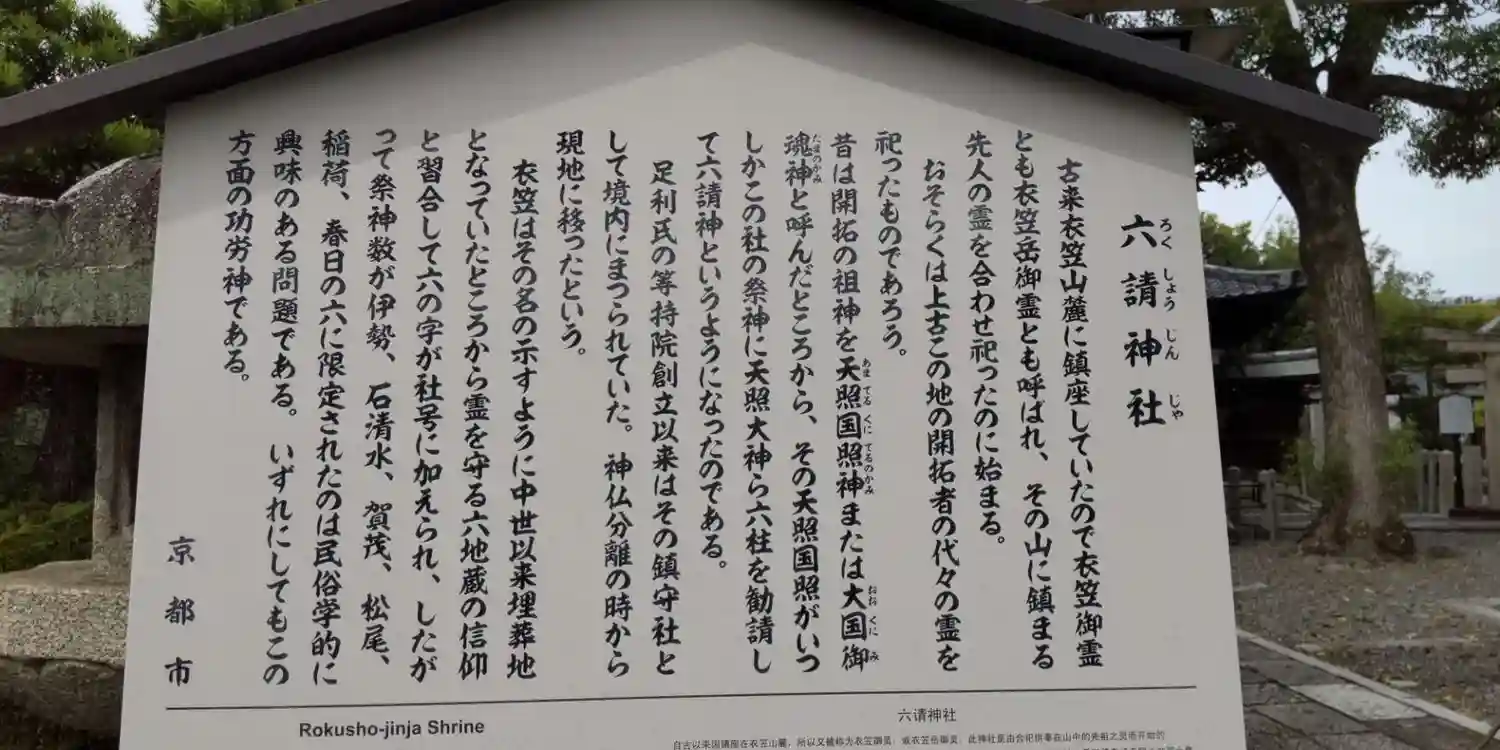 六請神社
ろくしょうじんじゃ
古来衣笠山麓に鎮座していたので衣笠御霊
とも衣笠岳御霊とも呼ばれ、その山に鎮まる
先人の霊を合わせ祀ったのに始まる。
おそらくは上古この地の開拓者の代々の霊を
祀ったものであろう。
昔は開拓の祖神を天照国照神または大国御
あまてるくにてるのかみ おおくにみ
魂神と呼んだところから、その天照国照がいつ
たまのかみ
しかこの社の祭神に天照大神ら六柱を勧請し
て六請神というようになったのである。
足利氏の等持院創立以来はその鎮守社と
して境内にまつられていた。神仏分離の時から
現地に移ったという。
衣笠はその名の示すように中世以来埋葬地
となっていたところから霊を守る六地蔵の信仰
と習合して六の字が社号に加えられ、したが
って祭神数が伊勢、石清水、賀茂、松尾、
稲荷、春日の六に限定されたのは民俗学的に
興味のある問題である。いずれにしてもこの
方面の功労神である。
京都市
Rokusho-jinja Shrine
六请神社